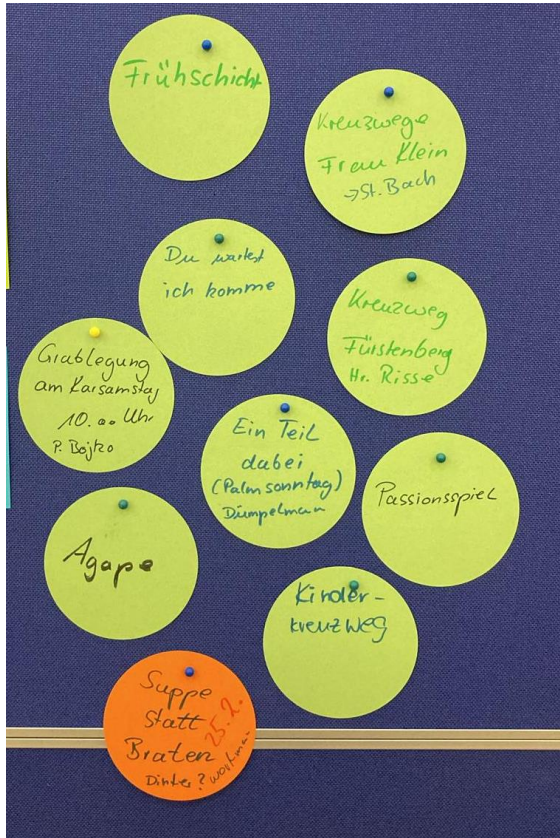 Frühschicht
Kreuzwege
Frau Klein
→St. Bach
Du wartest
ich komme
Kreuzweg
Fürstenberg
Hr. Risse
Grablegung
am Karsamstag
10.00 Uhr
P. Bojko
Ein Teil
dabei
(Palmsonntag)
Dümpelmann
Passionsspiel
Agape
Kinder-
kreuzweg
Suppe
Statt
Braten
25.2.
Dinter?